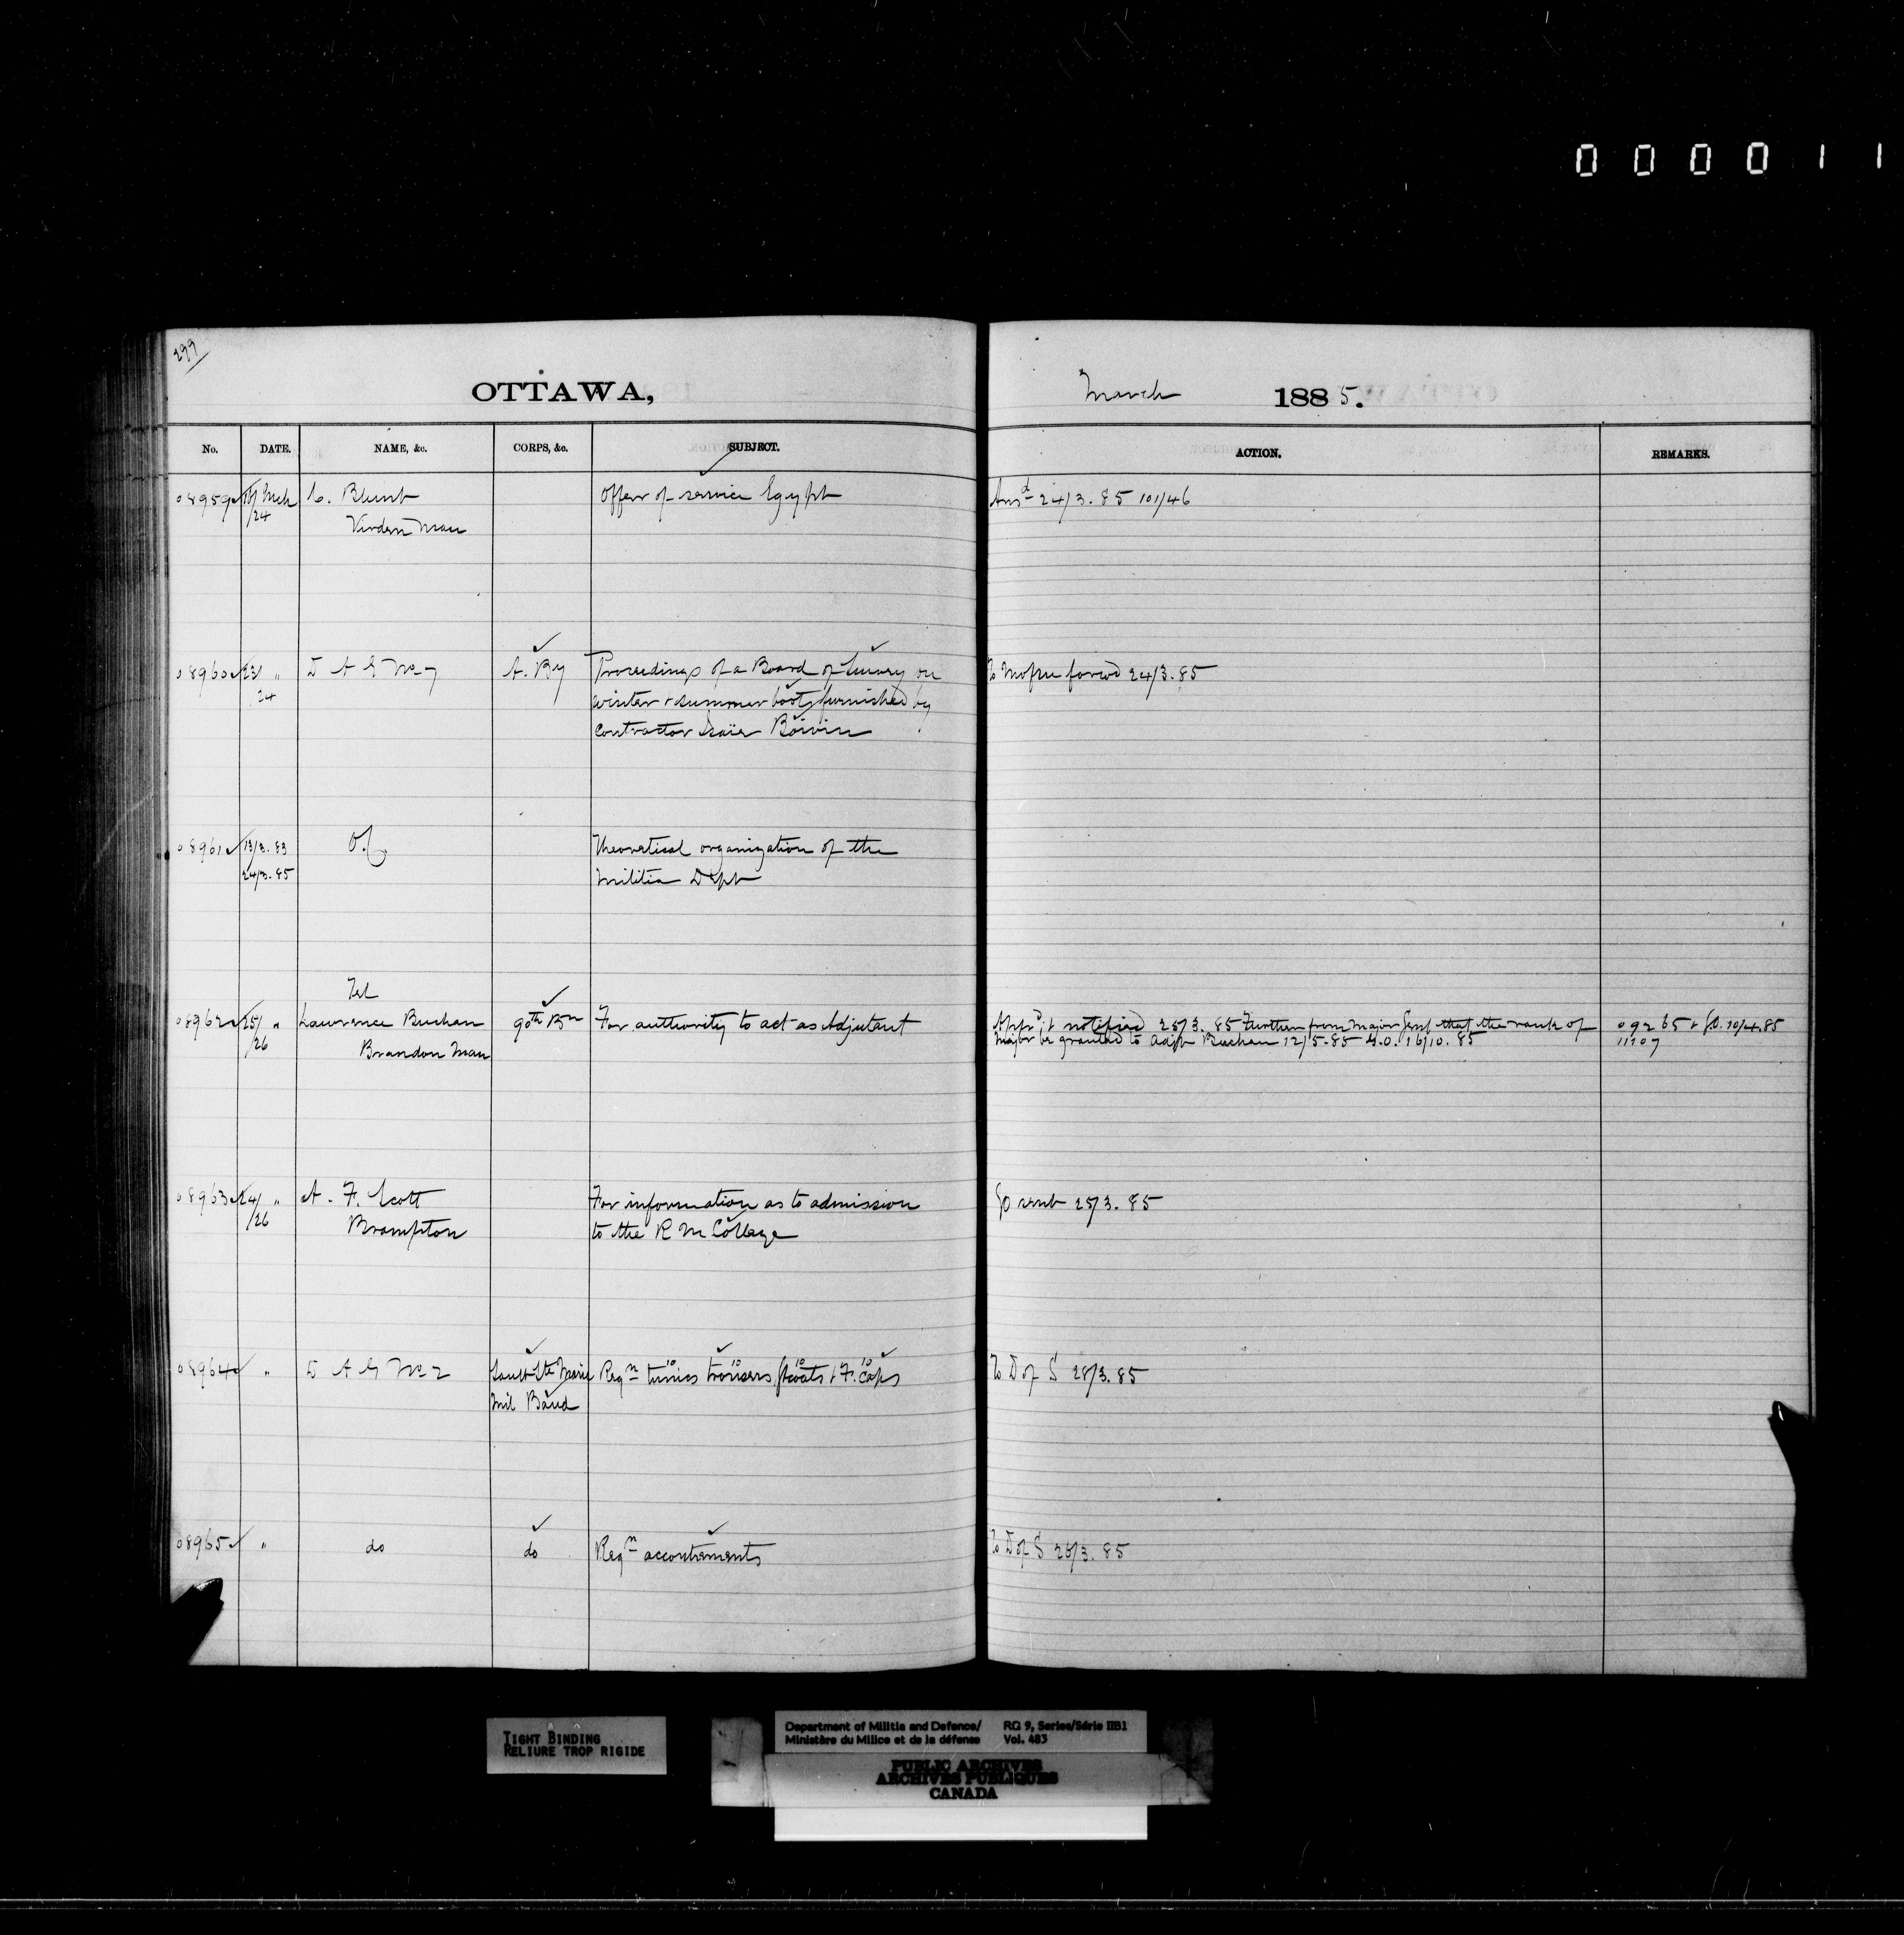 000011
299
OTTAWA,
March 1885.
No. DATE. NAME, &c. CORPS, &c. SUBJECT. ACTION. REMARKS.
08959 Mch C. Blunt Offers of service Egypt Ansd 24/3.85 101/46
/24 Virden Man
08960 23/ " D A G No 7 A. By Proceedings of a Board of Survey on forwd 24/3.85
24 winter & summer boots furnished by
contractor Isaïe Boivin
08961 13/3.83 Theoretical organization of the
24/3.85 Militia Dept
Tel
08962 25/ " Lawrence Buchan 90th Bn For authority to act as Adjutant notified 25/3.85 Further from Major Genl that the rank of 09265 & G.O. 10/4.85
/26 Brandon Man Major be granted to Adjt Buchan 12/5.85 G.O. 16/10.85 11107
08963 24/ " A. F. Scott For information as to admission GO sent 25/3.85
/26 Brampton to the R M College
08964 " D A G No 2 Sault Ste Marie Reqn 10 tunics 10 trousers 10 gtcoats & 10 F. Caps To D of S 28/3.85
Mil Band
08965 " do do Reqn accoutrements To D of S 28/3.85
TIGHT BINDING
RELIURE TROP RIGIDE
Department of Militia and Defence/ RG 9, Series/Série IIB1
Ministère du Milice et de la défense Vol. 483
PUBLIC ARCHIVES
ARCHIVES PUBLIQUES
CANADA